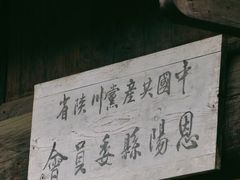 中國共産黨川陝省
恩陽縣委員會